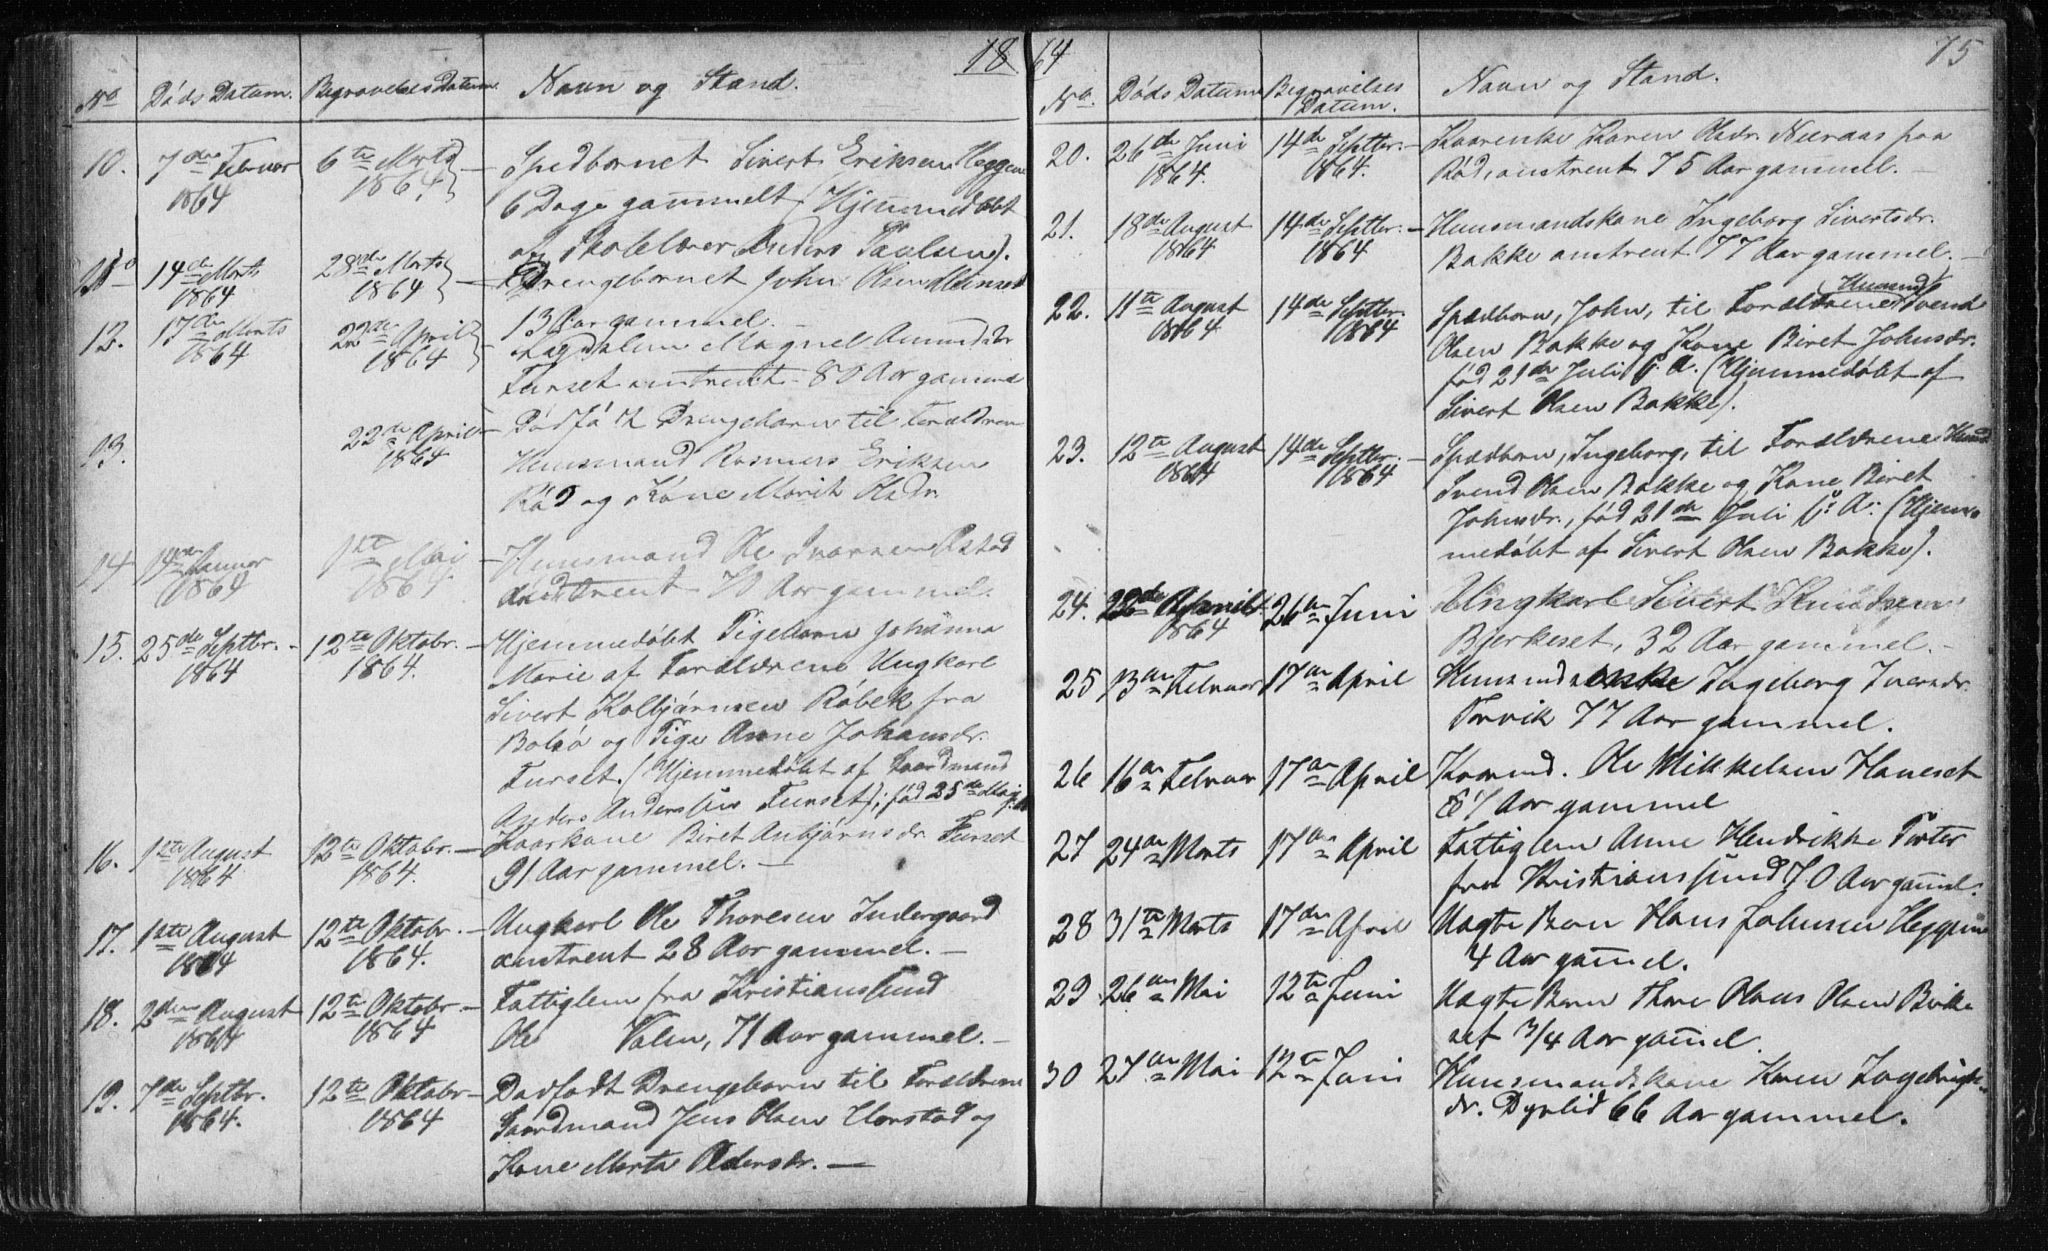 18
No Døds Datum. Begravelses Datum. Navn og Stand.
10. 7de Februar 1864 6te Marts 1864 — Spedbarnet Sivert Eriksen Heggem
6 Dage gammelt (Hjemmedøbt
af Skolelærer Anders Paulsen).
11. 14de Marts 1864 28de Marts 1864 — Drengebarnet John Olsen
13 Aar gammel. —
12. 17de Marts 1864 22de April 1864 — Magnel Amundsdr
Furset omtrent 80 Aar gammel
13. 22de April 1864 — Dødfødt Drengebarn til Forældrene
Huusmand Rasmus Eriksen
Rød og Kone Marit Olsdr.
14 14de Januar 1864 1ste Mai 1864. — Huusmand Ole Ivarsen
omtrent 70 Aar gammel.
15. 25de Septbr. 1864 — 12te Oktobr. 1864. — Hjemmedøbt Pigebarn Johanna
Marie af Forældrene Ungkarl
Sivert Kolbjørnsen Røbek fra
Bolsø og Pige Anne Johansdr.
Furset. (Hjemmedøbt af Gaardmand
Anders Andersen Furset); fød 25de Mai
16. 1ste August 1864 12te Oktobr. 1864. — Kaarkone Biret Anbjørnsdr. Furset
91 Aar gammel. —
17. 1ste August 1864 12te Oktobr. 1864. — Ungkarl Ole Thoresen Indergaard
omtrent 28 Aar gammel. —
18. 2den August 1864 12te Oktobr 1864 — Fattiglem fra Kristianssund
Ole Valen, 71 Aar gammel. —
19. 7de Septbr. 1864. 12te Oktobr 1864 — Dødfødt Drengebarn til Forældrene
Gaardmand Jens Olsen Horstad og
Kone Marta Pedersdr. —
64 75
No. Døds Datum Begravelses Datum. Navn og Stand.
20. 26de Juni 1864. 14de Septbr. 1864. — Kaarenke Karen Olsdr. Næraas paa
Rød, omtrent 75 Aar gammel. —
21. 18de August 1864 14de Septbr. 1864 — Huusmandskone Ingeborg Sivertsdr.
Bakke omtrent 77 Aar gammel. —
22. 11te August 1864 14de Septbr. 1864 Spædbarn, John, til Forældrene (Huusmd) Svend
Olsen Bakke og Kone Biret Johnsdr.
fød 21de Juli s. A. (Hjemmedøbt af
Sivert Olsen Bakke).
23. 12te August 1864 14de Septbr. 1864 — Spædbarn, Ingeborg, til Forældrene Huusmd
Svend Olsen Bakke og Kone Biret
Johnsdr., fød 21de Juli s. A. (Hjem-
medøbt af Sivert Olsen Bakke).
24. 22de April 1864 26de Juni Ungkarl Sivert Knudsen
Bjerkeset, 32 Aar gammel. —
25 13de Februar 17de April Huusmdsenke Ingeborg Iversdr.
Torvik 77 Aar gammel.
26 16de Februar 17de April Kaarmd. Ole Mikkelsen Haneset
81 Aar gammel
27 24de Marts 17de April Fattiglem Anne Hendrikke Porter
fra Kristianssund 70 Aar gam̄el.
28 31te Marts 17de April Uægte Barn Hans Johnsen Heggem
4 Aar gam̄el.
29 26de Mai 12te Juni Uægte Barn Thore Olaus Olsen Birke
set 3/4 Aar gam̄el.
30 27de Mai 12te Juni Huusmandskone Karen Ingebrigts-
dr. Dyrlid 66 Aar gammel.